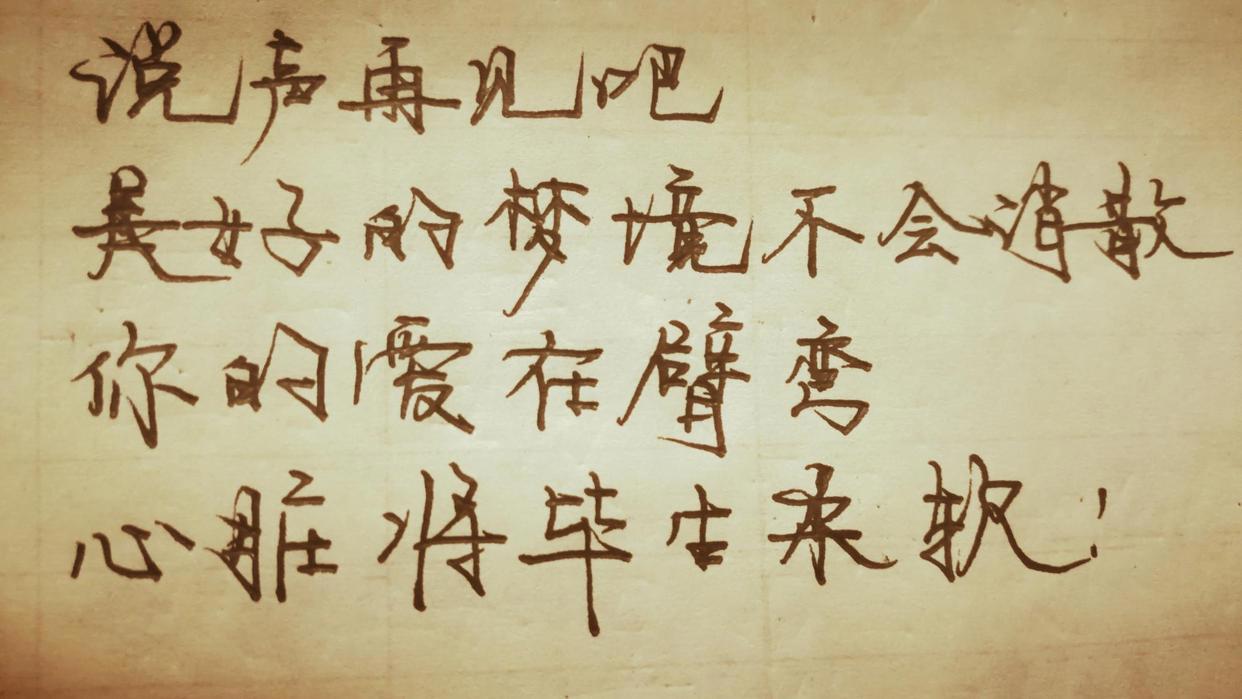 说声再见吧
美好的梦境不会消散
你的爱在臂弯
心脏将毕生柔软!